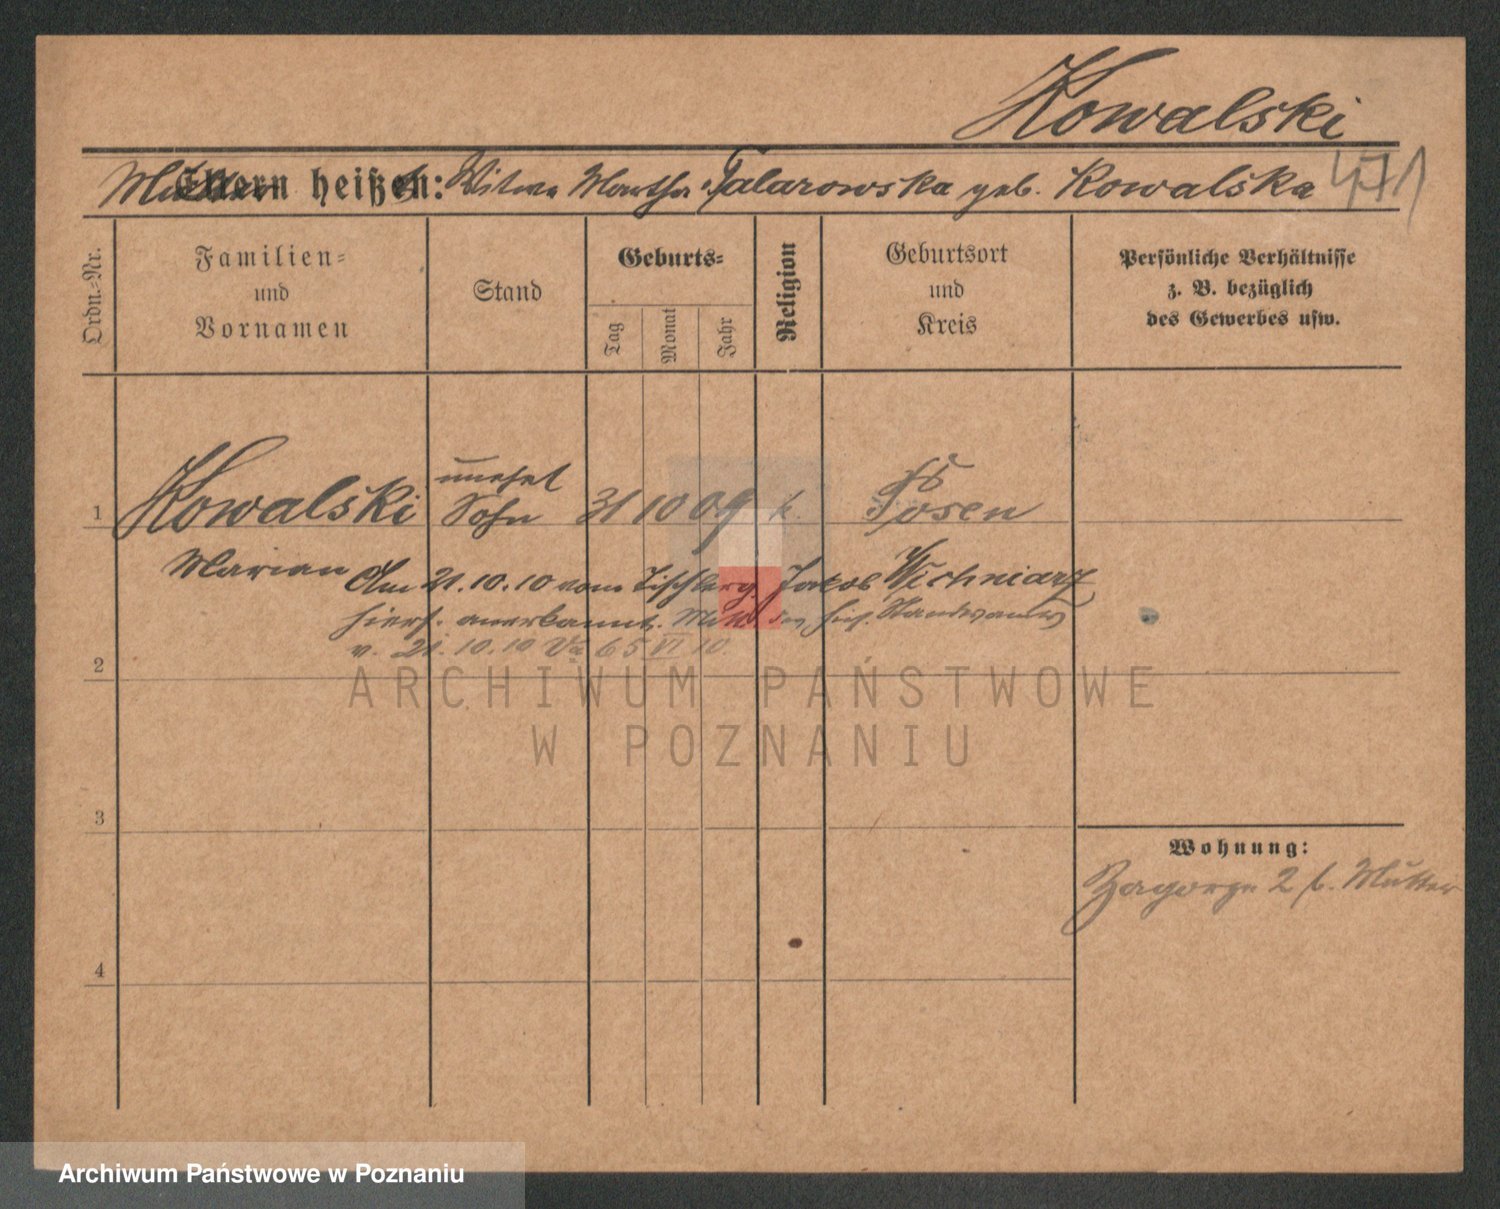 Kowalski
Eltern heißen: Witwe Martha Talarowska geb. Kowalska 471
Mutter
Ordn.-Nr.
Familien- und Vornamen
Stand
Geburts-
Tag
Monat
Jahr
Religion
Geburtsort und Kreis
Persönliche Verhältnisse
z. B. bezüglich
des Gewerbes usw.
unehel
1 Kowalski Sohn 31 10 09 k. Posen
Marian Am 21.10.10 vom Tischlerg. Jakob Wichniarz
hiers. anerkannt. Mitt. des hies. Standesamtes
v. 21.10.10 65 VI 10.
2
3
Wohnung:
Zagorze 2 b. Mutter
4
ARCHIWUM PAŃSTWOWE
W POZNANIU
Archiwum Państwowe w Poznaniu